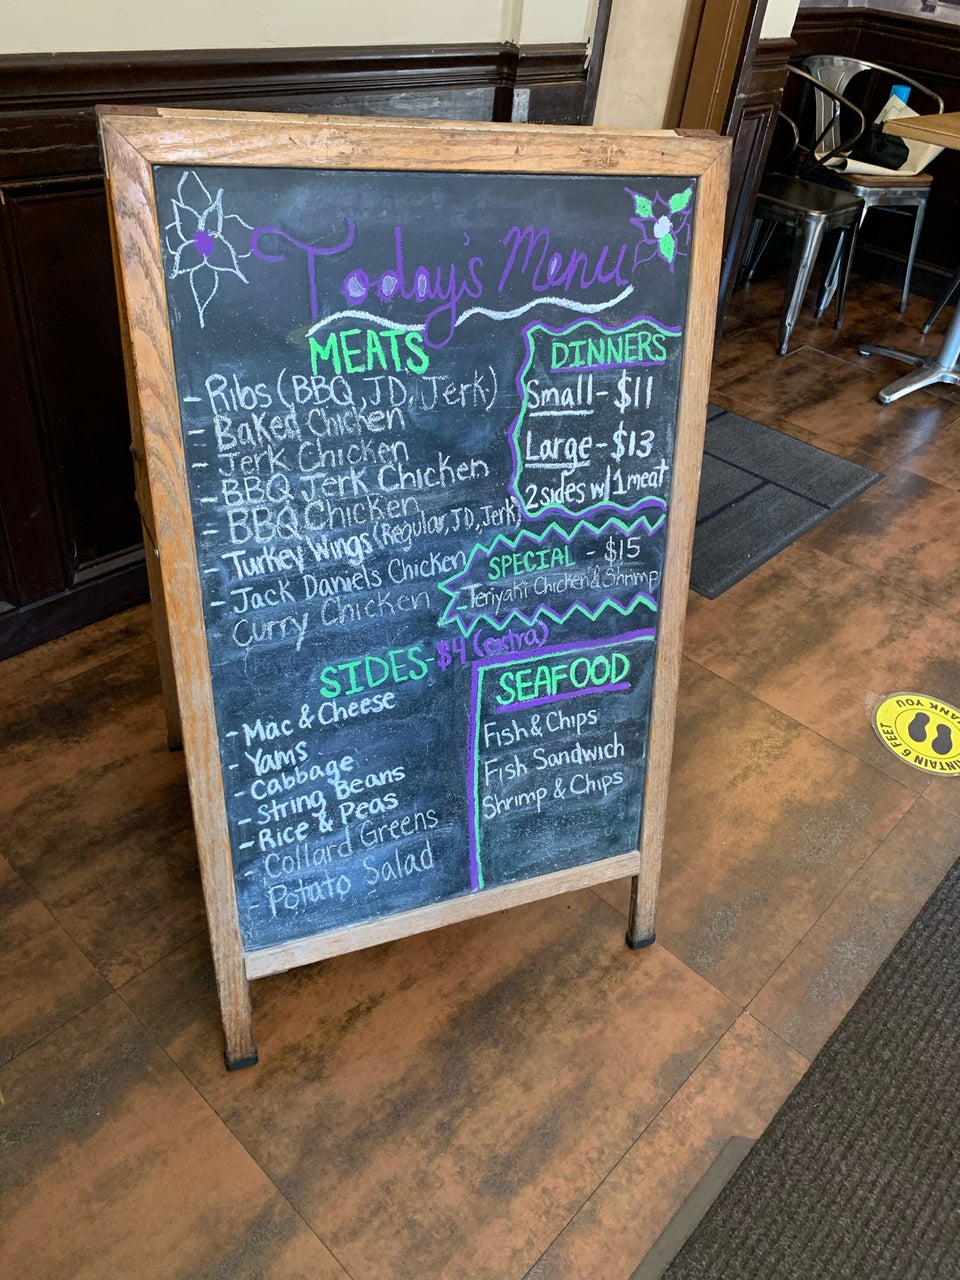 Today's Menu
MEATS
- Ribs (BBQ, JD, Jerk)
- Baked Chicken
- Jerk Chicken
- BBQ Jerk Chicken
- BBQ Chicken
- Turkey Wings (Regular, JD, Jerk)
- Jack Daniels Chicken
- Curry Chicken
DINNERS
Small - $11
Large - $13
2 sides w/ 1 meat
SPECIAL - $15
- Teriyaki Chicken & Shrimp
SIDES - $4 (extra)
- Mac & Cheese
- Yams
- Cabbage
- String Beans
- Rice & Peas
- Collard Greens
- Potato Salad
SEAFOOD
Fish & Chips
Fish Sandwich
Shrimp & Chips
6 FEET
THANK YOU